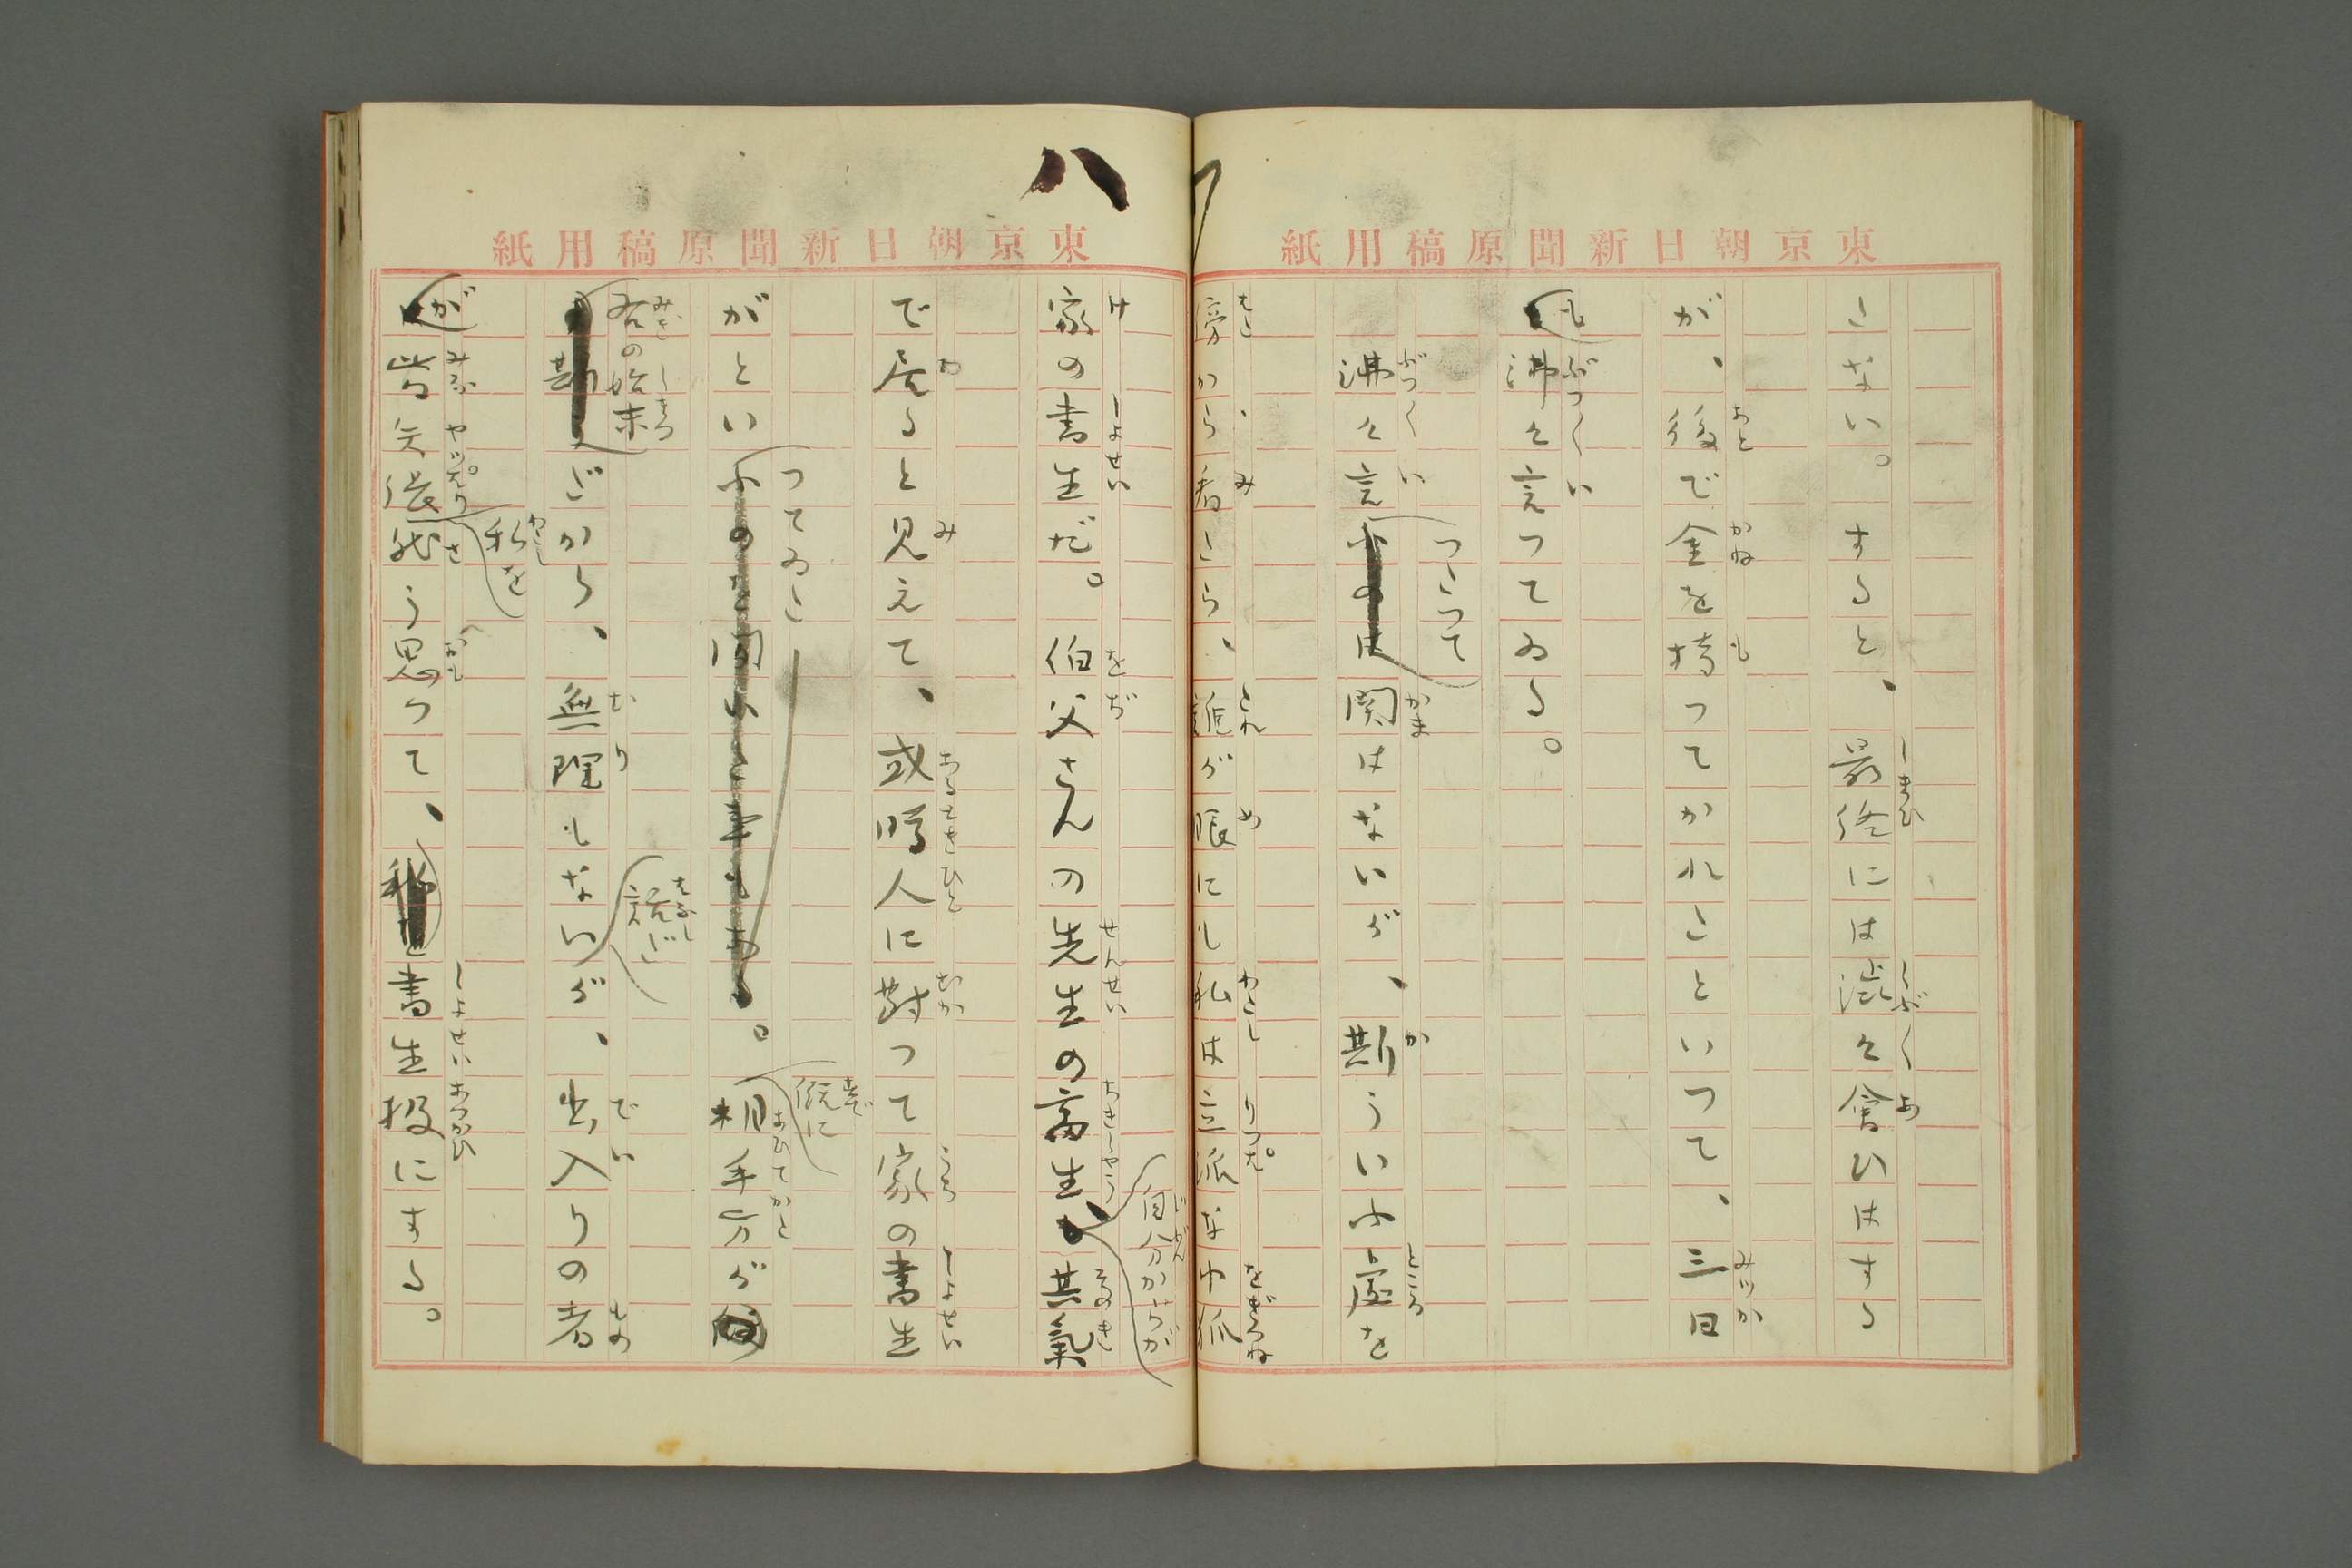 東京朝日新聞原稿用紙
たない。すると、最終には澁々會ひはする
が、後で金を持つてかれたといつて、三日
も沸々言つてゐる。
沸々言つたつて関はないが、斯ういふ處を
傍から看たら、誰が眼にも私は立派な小狐
八
東京朝日新聞原稿用紙
家の書生だ。伯父さんの先生の畜生、自分からが其氣
で居ると見えて、或時人に對つて家の書生
がといつてゐた。既に相手方が
右の始末だから、無理もない話だが、出入りの者
が皆矢張然う思つて、私を書生扱にする。